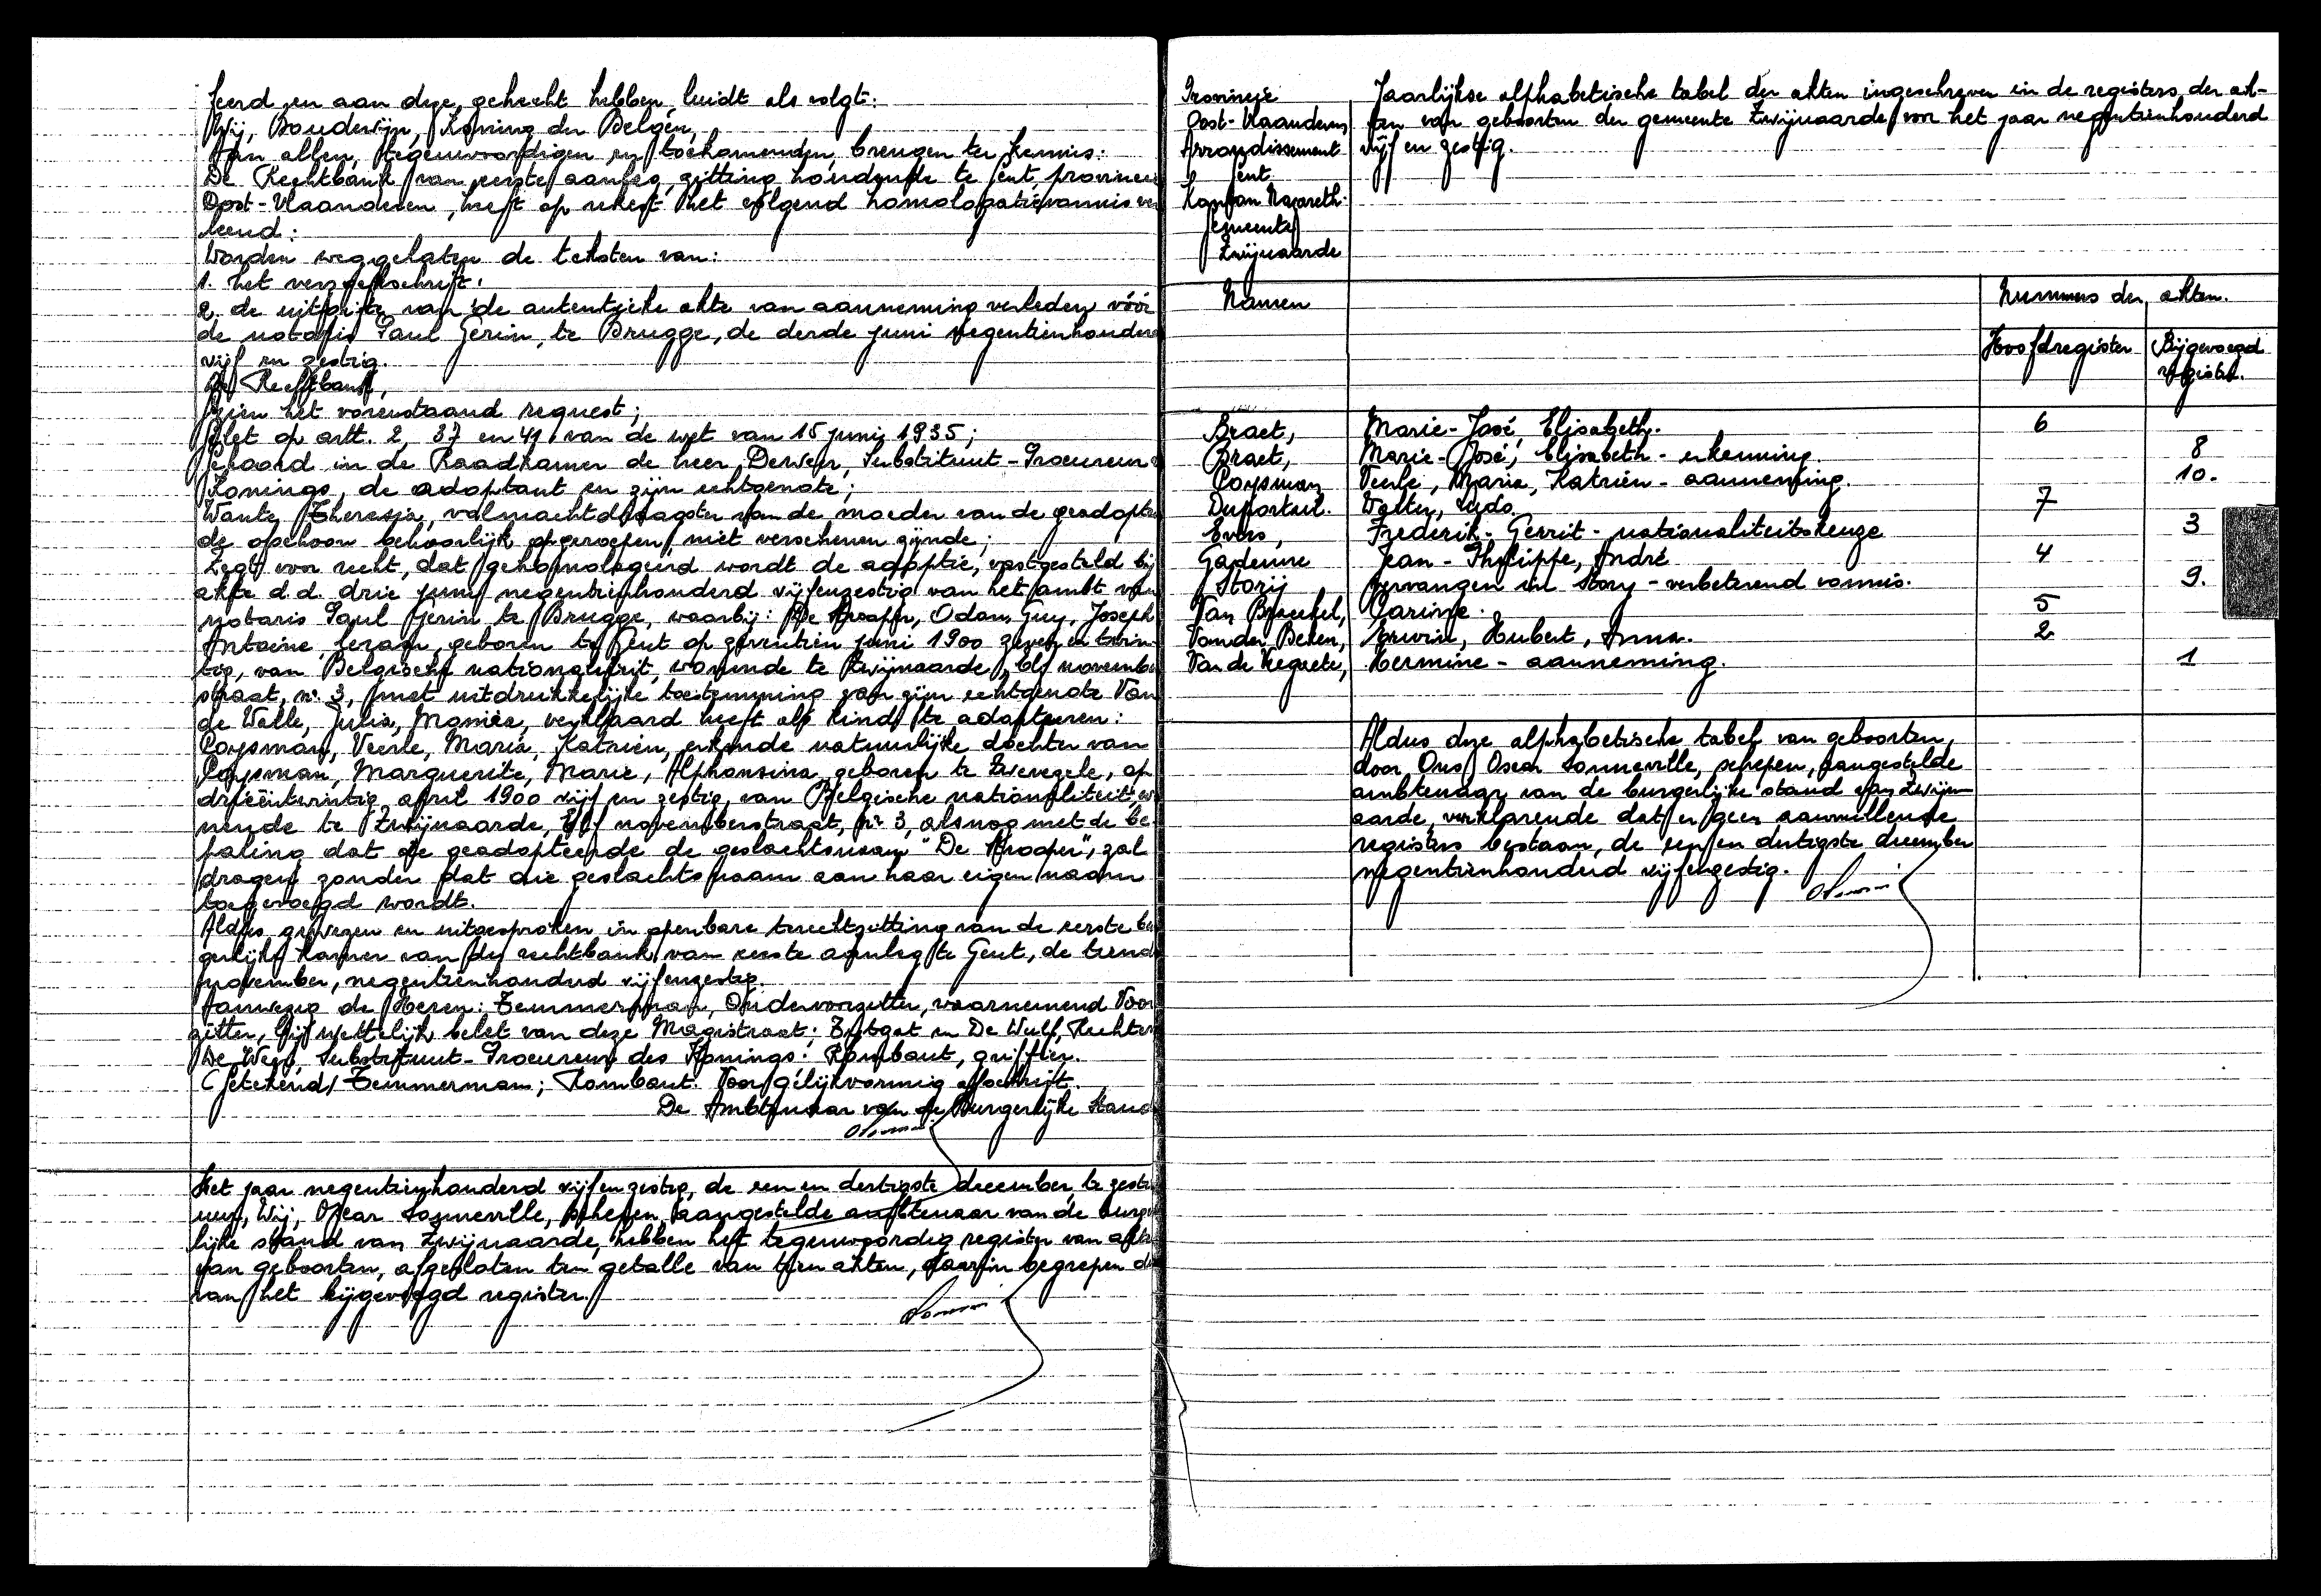 feerd en aan deze gehecht hebben luidt als volgt:
Wij, Boudewijn, Koning der Belgen,
Aan allen, tegenwoordigen en toekomenden, brengen ter kennis:
De Rechtbank van eerste aanleg, zitting houdende te Gent, provincie
Oost-Vlaanderen, heeft op rekest het volgend homologatievonnis ver
leend:
Worden weggelaten de teksten van:
1. het verzoekschrift.
2. de uitgifte van de autentieke akte van aanneming verleden vóór
de notaris Paul Gerin, te Brugge, de derde juni negentienhonderd
vijf en zestig.
De Rechtbank,
Gezien het vorenstaand request;
Gelet op artt. 2, 37 en 41 van de wet van 15 juni 1935;
Gehoord in de Raadkamer de heer Deweer, Substituut-Procureur
Konings, de adoptant en zijn echtgenote;
Wante Theresia, volmachtdraagster van de moeder van de geadopte
de ophoon behoorlijk opgeroepen, niet verschenen zijnde;
Zegt voor recht, dat gehomologeerd wordt de adoptie, vastgesteld bij
akte d.d. drie juni negentienhonderd vijfenzestig van het ambt van
notaris Paul Gerin te Brugge, waarbij: De Krooper, Odon, Guy, Joseph
Antoine, geboren te Gent op zeventien juni 1900 zeven en twin-
tig, van Belgische nationaliteit, wonende te Zwijnaarde, Elf november
straat, nr. 3, met uitdrukkelijke toestemming van zijn echtgenote Van
de Walle, Julia, Monica, verklaard heeft als kind te adopteren:
Coysman, Veerle, Maria, Katrien, erkende natuurlijke dochter van
Coysman, Marguerite, Marie, Alphonsina, geboren te Zwevezele, op
drieëntwintig april 1900 vijf en zestig, van Belgische nationaliteit, wo
nende te Zwijnaarde, Elf novemberstraat, nr 3, alsnog met de be-
paling dat de geadopteerde de geslachtsnaam "De Krooper", zal
dragen zonder dat die geslachtsnaam aan haar eigen naam
toegevoegd wordt.
Aldus gewezen en uitgesproken in openbare terechtzitting van de eerste bur
gerlijke Kamer van de rechtbank van eerste aanleg te Gent, de tiende
november, negentienhonderd vijfenzestig.
Aanwezig de Heren: Temmerman, Ondervoorzitter, waarnemend Voor
zitter, bij wettelijk belet van deze Magistraat; Bytgat en De Wulf, Rechters
De Weer, Substituut-Procureur des Konings: Rombaut, griffier.
(Getekend) Temmerman; Rombaut. Voor gelijkvormig afschrift.
De Ambtenaar van de Burgerlijke Stand
Het jaar negentienhonderd vijfenzestig, de een en dertigste december, te zestien
uur, Wij, Oscar Sonneville, schepen, aangestelde ambtenaar van de burger
lijke stand van Zwijnaarde, hebben het tegenwoordig register van akten
van geboorten, afgesloten ten getalle van tien akten, daarin begrepen die
van het bijgevoegd register.
Provincie
Oost-Vlaanderen
Arrondissement
Gent
Kanton Nazareth.
Gemeente
Zwijnaarde
Jaarlijkse alphabetische tabel der akten ingeschreven in de registers der ak-
ten van geboorten der gemeente Zwijnaarde voor het jaar negentienhonderd
vijf en zestig.
Namen Nummers der akten.
Hoofdregister Bijgevoegd
register.
Braet, Marie-José, Elisabeth. 6
Braet, Marie-José, Elisabeth - erkenning. 8
Coysman Veerle, Maria, Katrien - aanneming. 10.
Duportail. Walter, Ludo. 7
Evers, Frederik-Gerrit - nationaliteitskeuze 3
Gadeyne Jean-Philippe, André 4
Storij vervangen in Story - verbeterend vonnis. 9.
Van Braeckel, Carine. 5
Van der Beken, Erwin, Hubert, Anna. 2
Van de Keguele, Hermine - aanneming. 1
Aldus deze alphabetische tabel van geboorten,
door Ons Oscar Sonneville, schepen, aangestelde
ambtenaar van de burgerlijke stand van Zwijn
aarde, verklarende dat er geen aanvullende
registers bestaan, de een en dertigste december
negentienhonderd vijfenzestig.